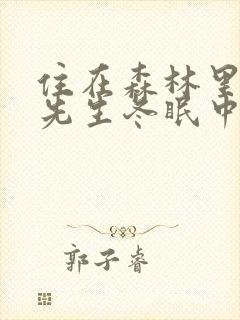 住在森林里
先生冬眠中
郭子睿